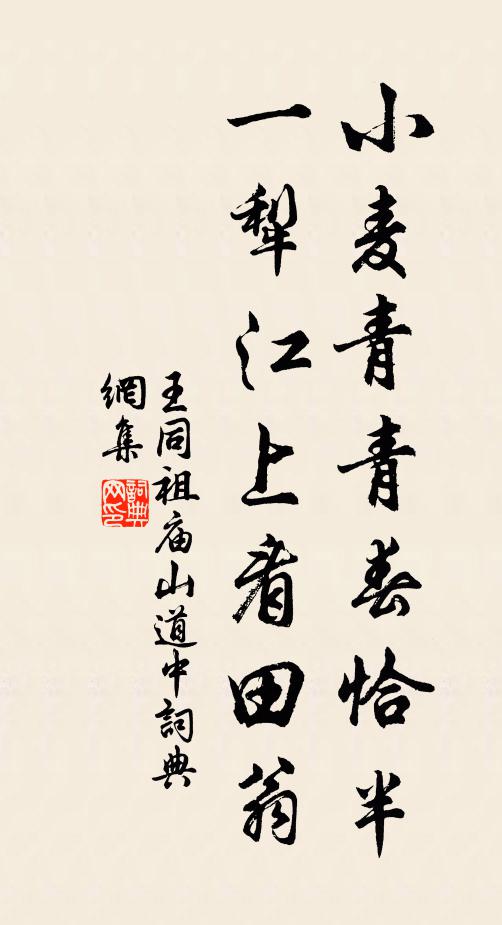 小麦青青春恰半
一犁江上看田翁
王同祖庙山道中詞典
網集
詞典
网印